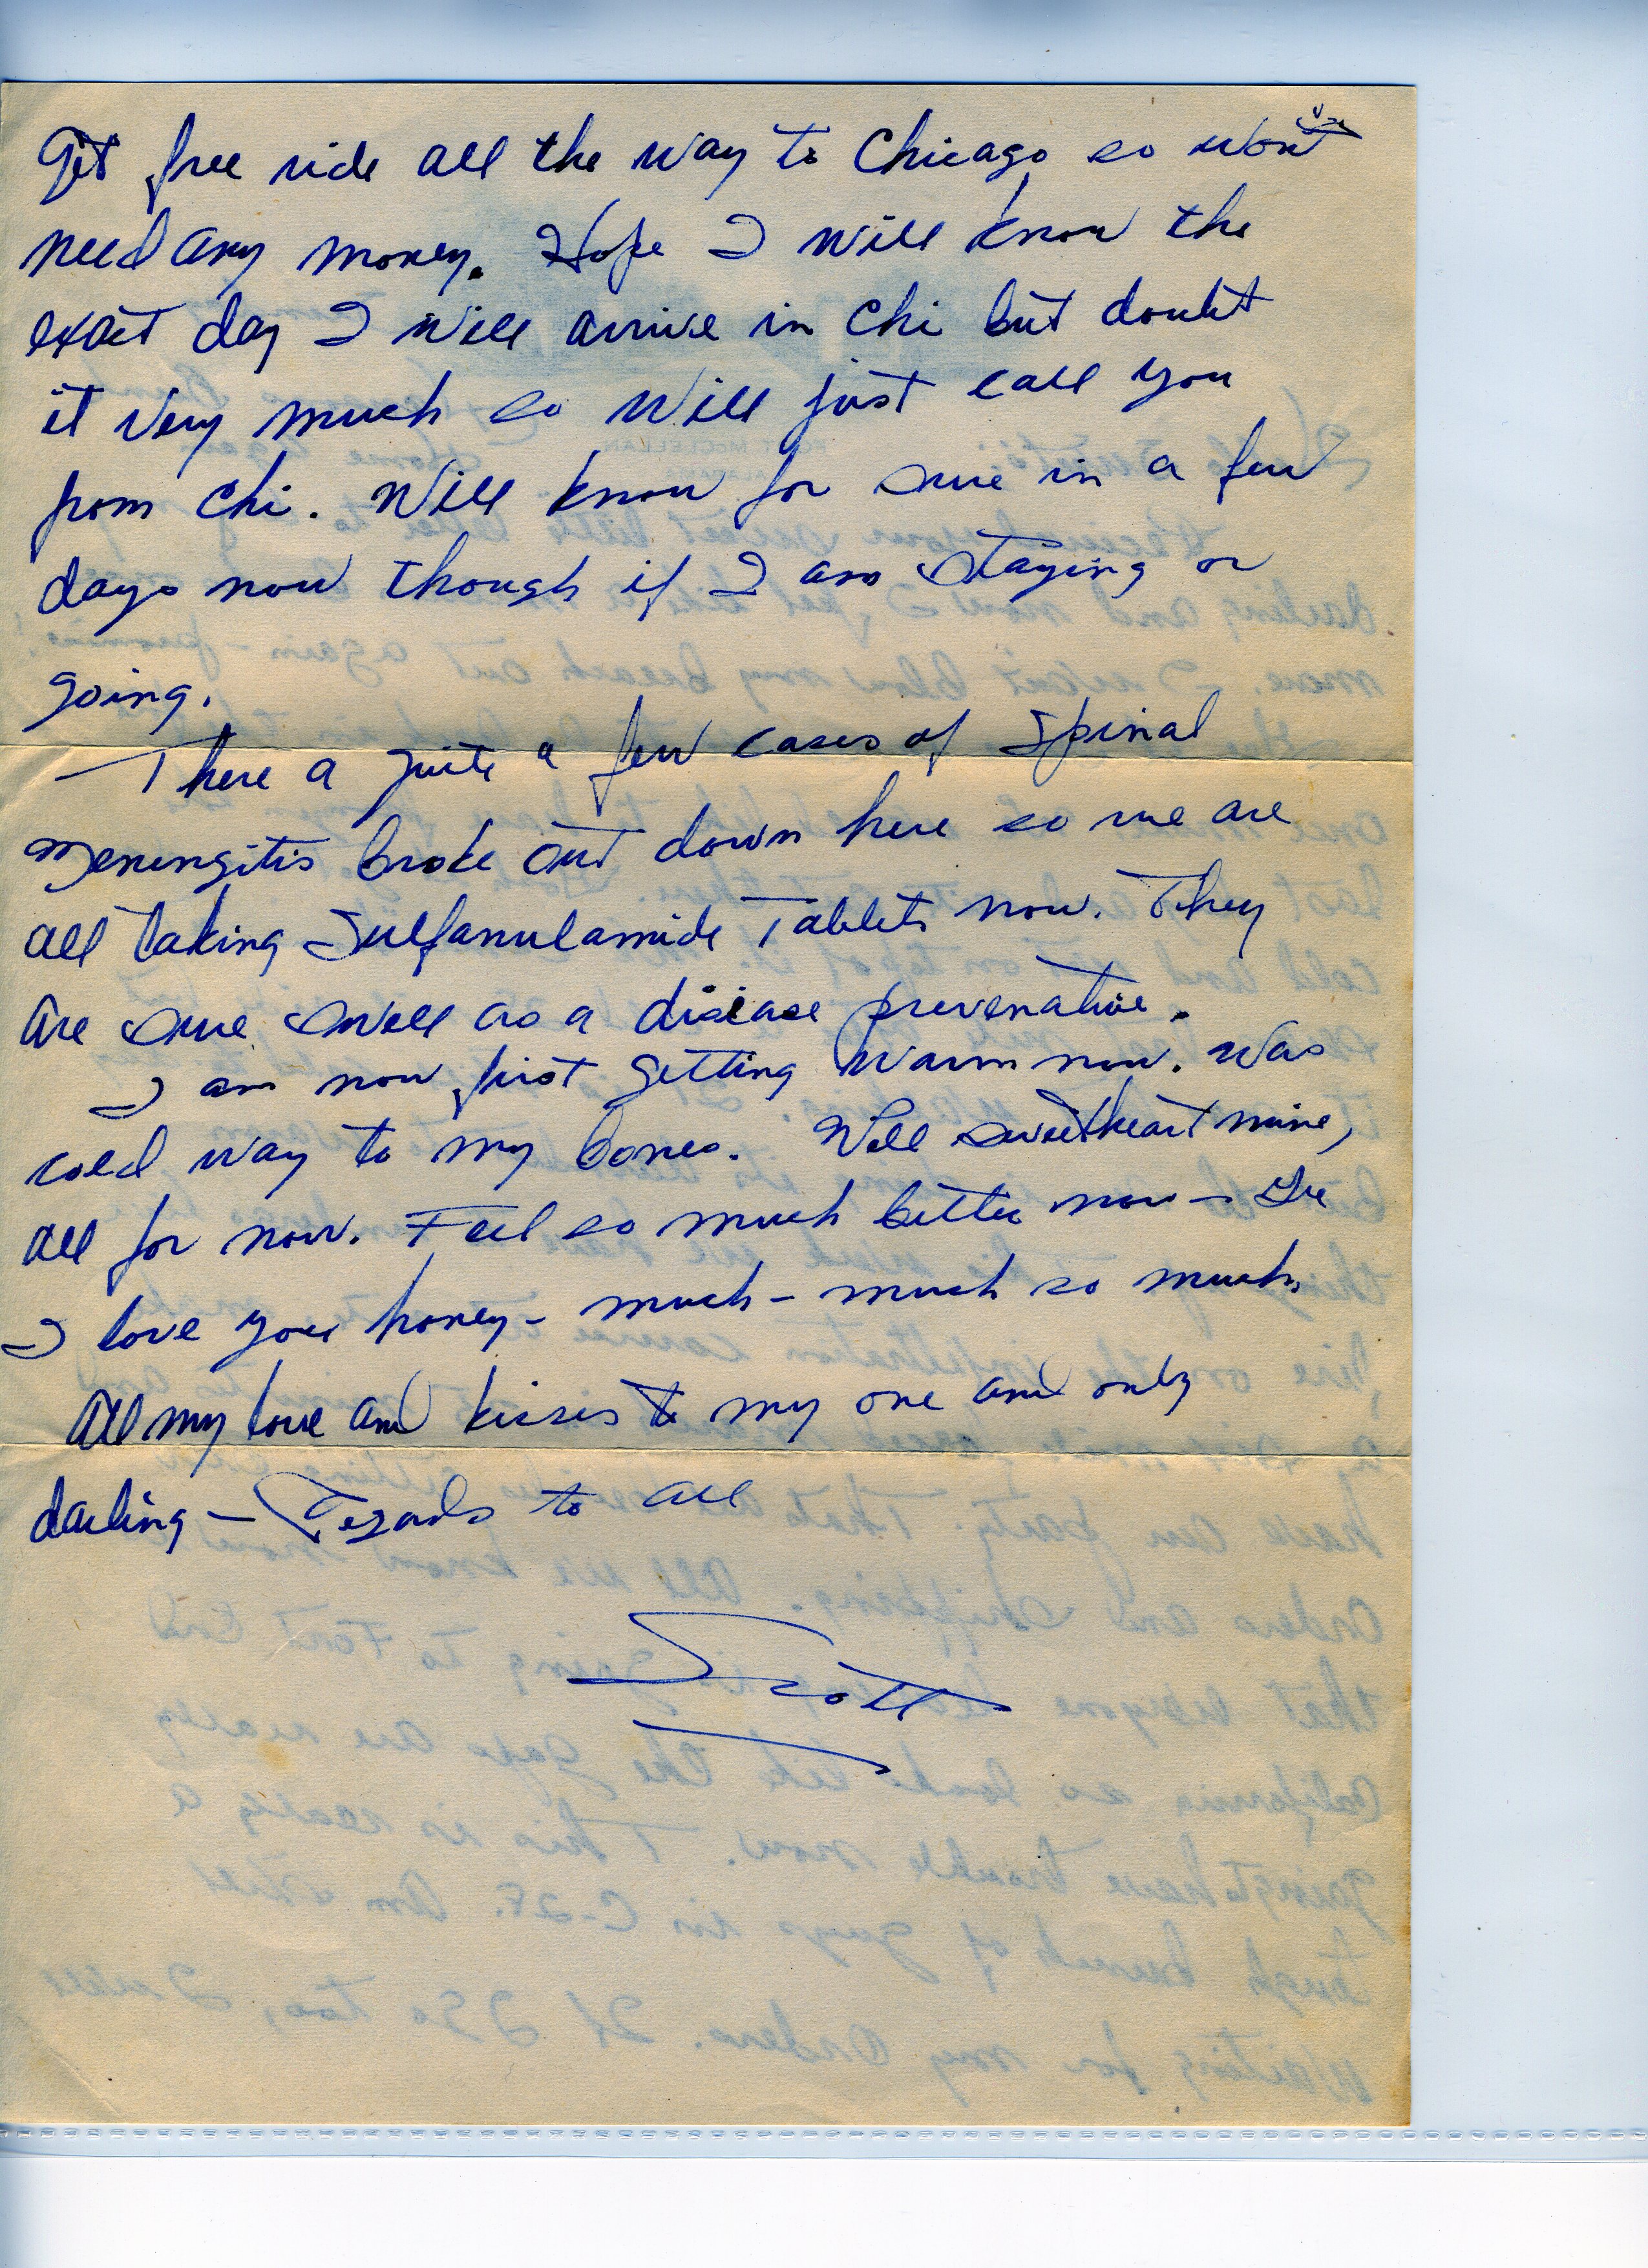 Get free ride all the way to Chicago so won't
need any money. Hope I will know the
exact day I will arrive in Chi but doubt
it very much so will just call you
from Chi. Will know for sure in a few
days now though if I am staying or
going.
There a quite a few cases of Spinal
Meningitis broke out down here so we are
all taking Sulfanulamide Tablets now. They
are sure swell as a disease prevenative.
I am now just getting warm now. Was
cold way to my bones. Well sweetheart mine,
all for now. Feel so much better now - Gee
I love you honey - much - much so much.
All my love and kisses to my one and only
darling - Regards to all
Scott